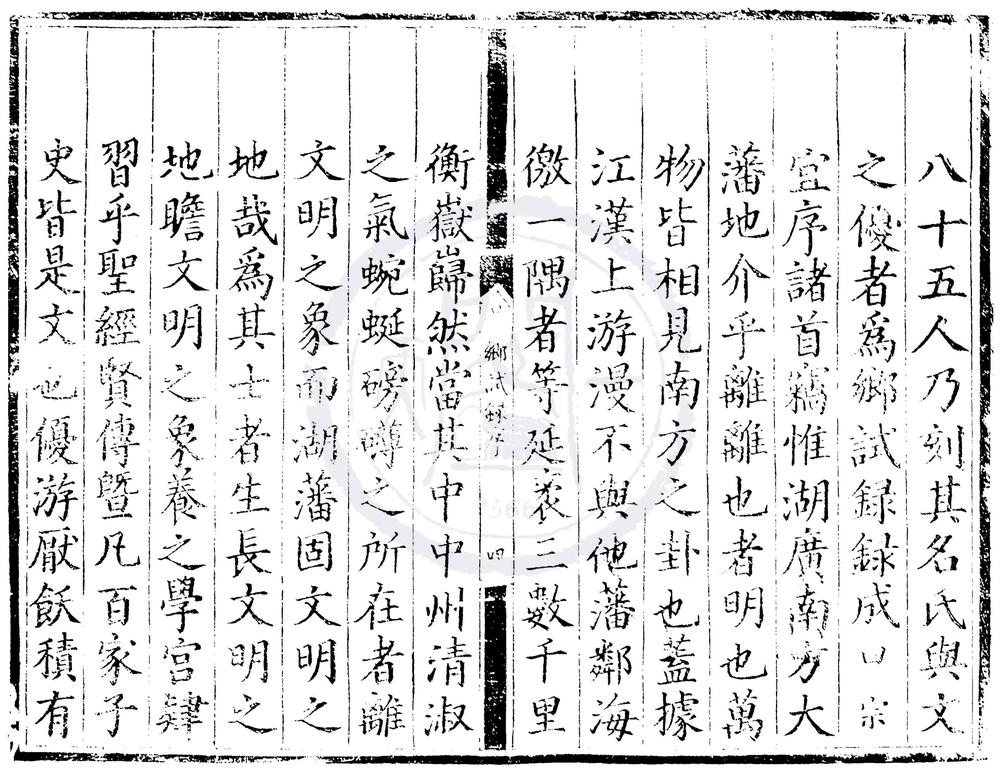 八十五人乃刻其名氏與文
之優者爲鄉試録録成口宗
宜序諸首竊惟湖廣南方大
藩地介乎離離也者明也萬
物皆相見南方之卦也蓋據
江漢上游漫不與他藩鄰海
徼一隅者等延袤三數千里
鄉試録序
四
衡嶽巋然當其中中州清淑
之氣蜿蜒磅礴之所在者離
文明之象而湖藩固文明之
地哉爲其士者生長文明之
地瞻文明之象養之學宮肄
習乎聖經賢傳曁凡百家子
史皆是文也優游厭飫積有